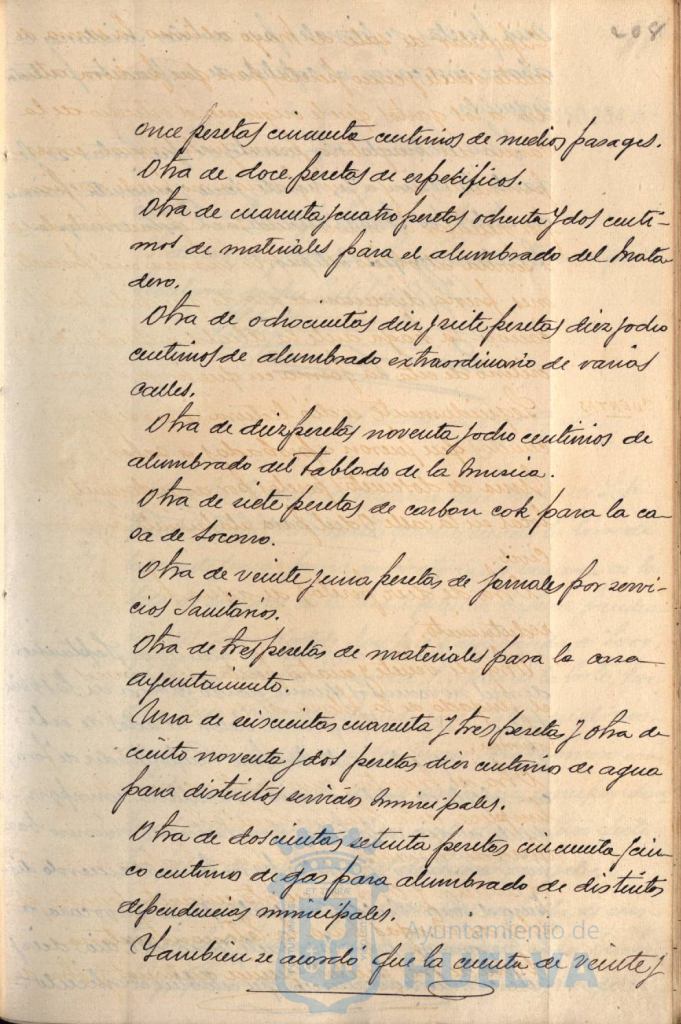 208
once pesetas cincuenta centimos de medios pasages.
Otra de doce pesetas de especificos.
Otra de cuarenta y cuatro pesetas ochenta y dos centi-
mos de materiales para el alumbrado del Mata
dero.
Otra de ochocientas diez y siete pesetas diez y ocho
centimos de alumbrado extraordinario de varias
calles.
Otra de diez pesetas noventa y ocho centimos de
alumbrado del tablado de la musica.
Otra de siete pesetas de carbon cok para la ca-
sa de Socorro.
Otra de veinte y una pesetas de jornales por servi-
cios Sanitarios.
Otra de tres pesetas de materiales para la casa
Ayuntamiento.
Una de seiscientas cuarenta y tres peseta y otra de
ciento noventa y dos pesetas diez centimos de agua
para distintos servicios Municipales.
Otra de doscientas setenta pesetas cincuenta y cin-
co centimo de gas para alumbrado de distintos
dependencias municipales.
Tambien se acordó que la cuenta de veinte y
Ayuntamiento de
HUELVA